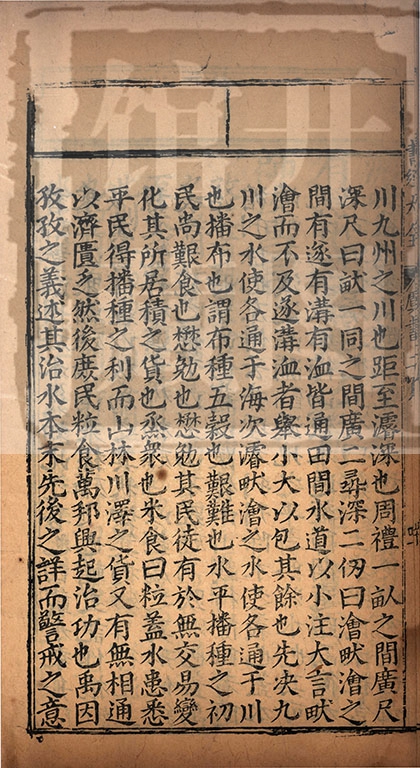 川九州之川也距至濬深也周禮一畝之間廣尺
深尺曰畎一同之間廣二尋深二仞曰澮畎澮之
間有遂有溝有洫皆通田間水道以小注大言畎
澮而不及遂溝洫者舉小大以包其餘也先决九
川之水使各通于海次濬畎澮之水使各通于川
也播布也謂布種五穀也艱難也水平播種之初
民尚艱食也懋勉也懋勉其民徙有於無交易變
化其所居積之貨也烝衆也米食曰粒蓋水患悉
平民得播種之利而山林川澤之貨又有無相通
以濟匱乏然後庶民粒食萬邦興起治功也禹因
孜孜之義述其治水本末先後之詳而警戒之意